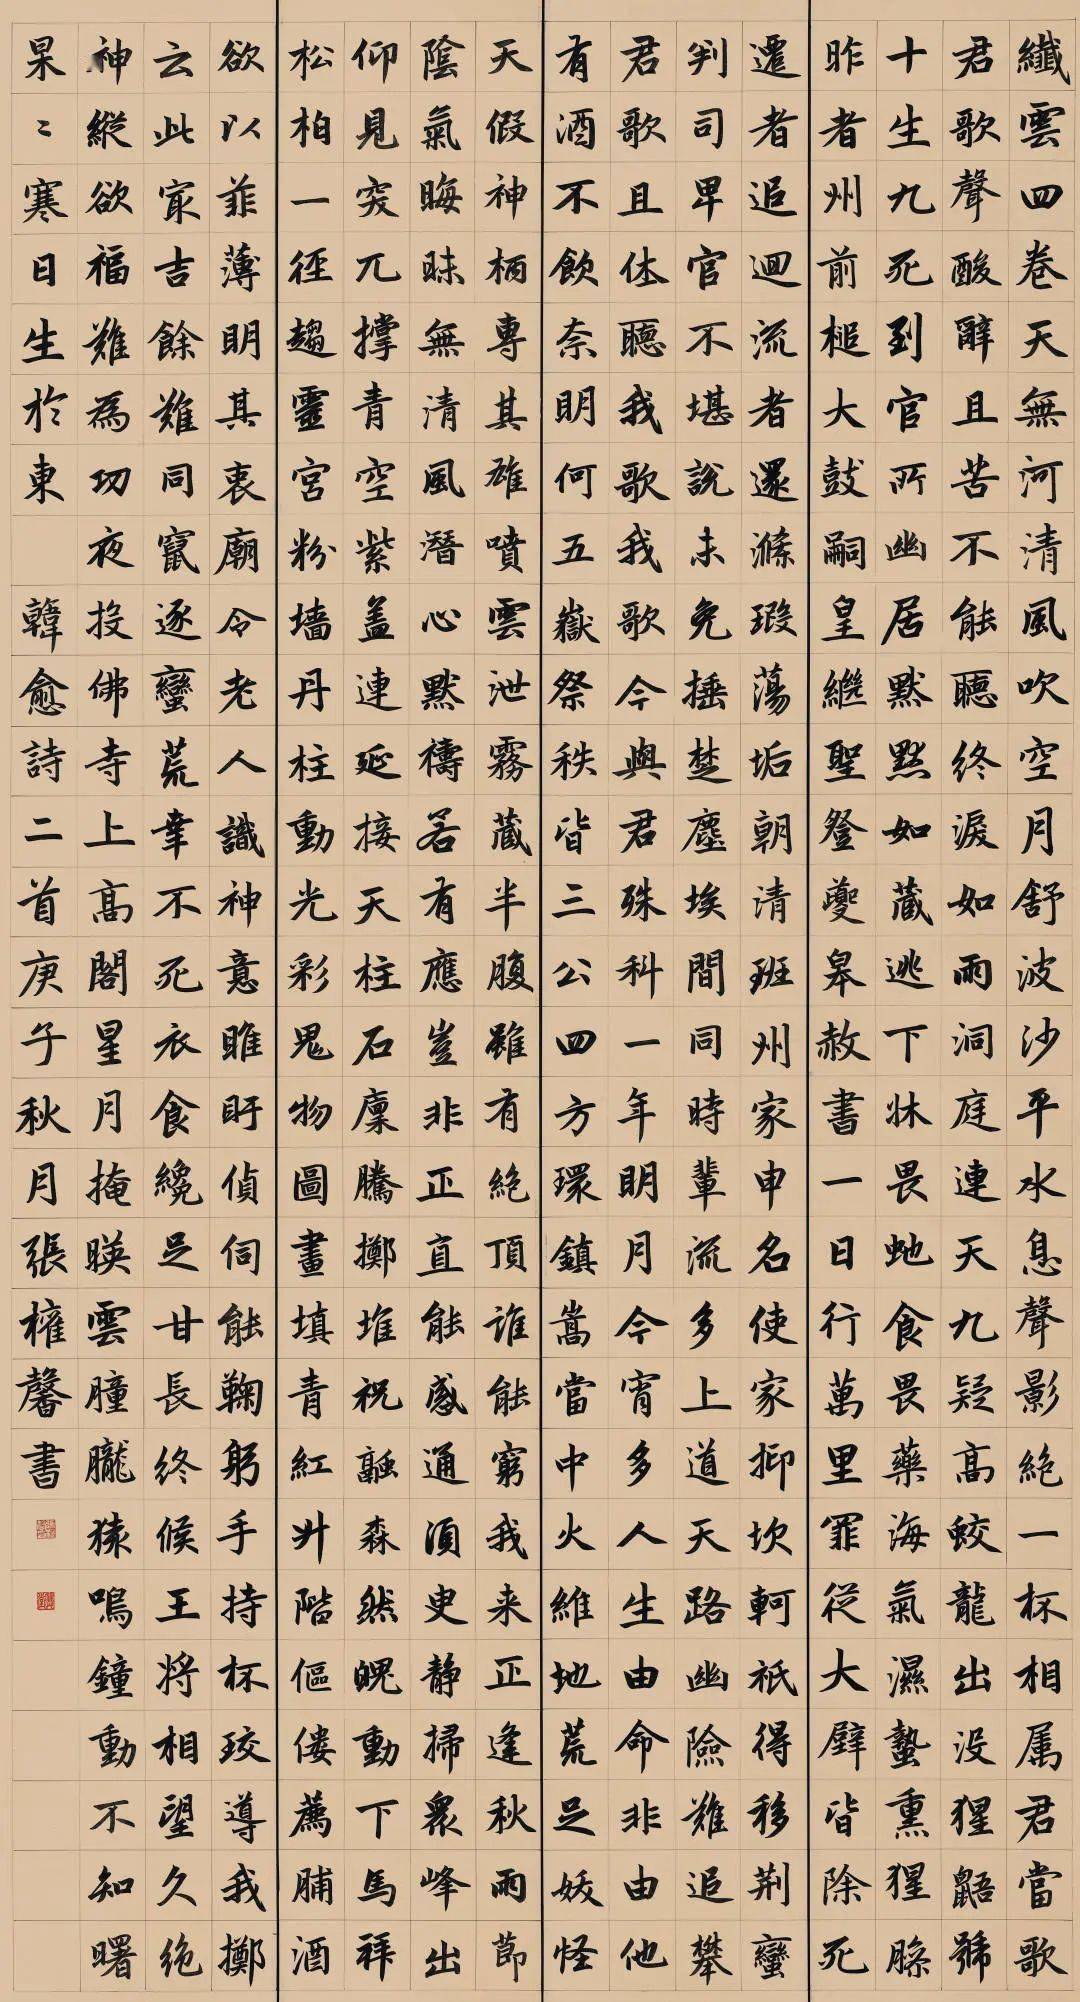 纖雲四卷天無河清風吹空月舒波沙平水息聲影絕一杯相属君當歌
君歌聲酸辭且苦不能聽終淚如雨洞庭連天九疑高蛟龍出没猩鼯號
十生九死到官所幽居默默如藏逃下牀畏虵食畏藥海氣濕蟄熏猩臊
昨者州前槌大鼓嗣皇繼聖登夔皋赦書一日行萬里罪從大辟皆除死
遷者追迴流者還滌瑕蕩垢朝清班州家申名使家抑坎軻祇得移荆蠻
判司卑官不堪說未免捶楚塵埃間同時輩流多上道天路幽險難追攀
君歌且休聽我歌我歌今與君殊科一年明月今宵多人生由命非由他
有酒不飲奈明何五嶽祭秩皆三公四方環鎮嵩當中火維地荒足妖怪
天假神柄專其雄噴雲泄霧藏半腹雖有絕頂誰能窮我来正逢秋雨節
陰氣晦昧無清風潛心默禱若有應豈非正直能感通須臾静掃衆峰出
仰見突兀撑青空紫蓋連延接天柱石廩騰擲堆祝融森然魄動下馬拜
松柏一徑趨靈宮粉墙丹柱動光彩鬼物圖畫填青紅升階傴僂薦脯酒
欲以菲薄明其衷廟令老人識神意睢盱偵伺能鞠躬手持杯珓導我擲
云此㝡吉餘難同竄逐蠻荒幸不死衣食纔足甘長終候王将相望久絶
神縱欲福難為功夜投佛寺上高閣星月掩映雲朣朧猿鳴鐘動不知曙
杲〻寒日生於東 韓愈詩二首庚子秋月張權馨書